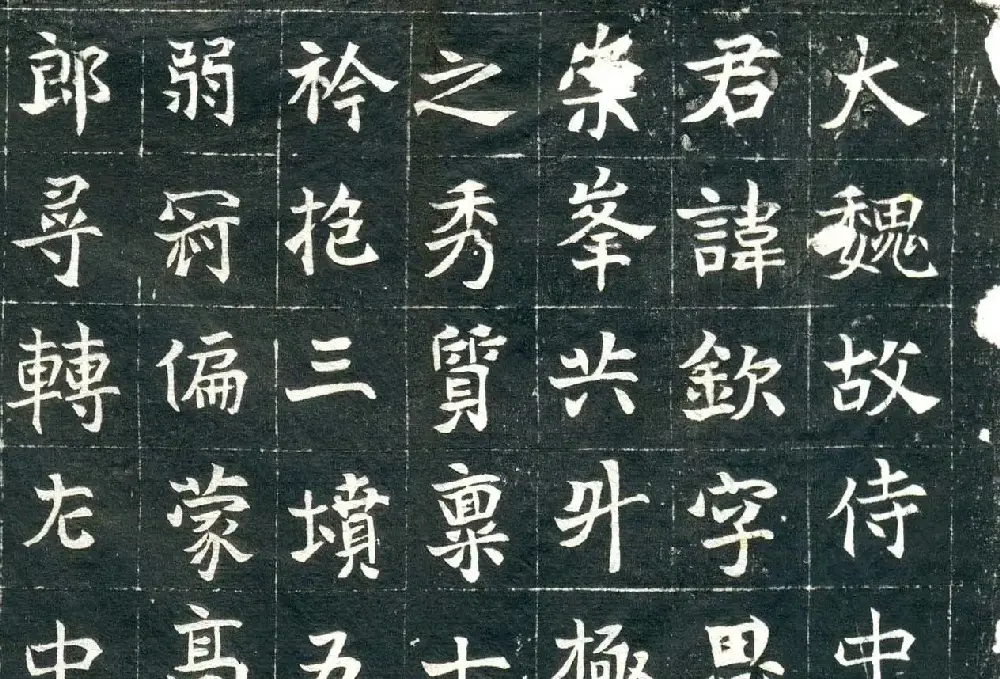 大魏故侍中
君諱欽字思
崇峯共升極
之秀質稟十
衿抱三墳五
弱冠偏蒙高
郎尋轉左中